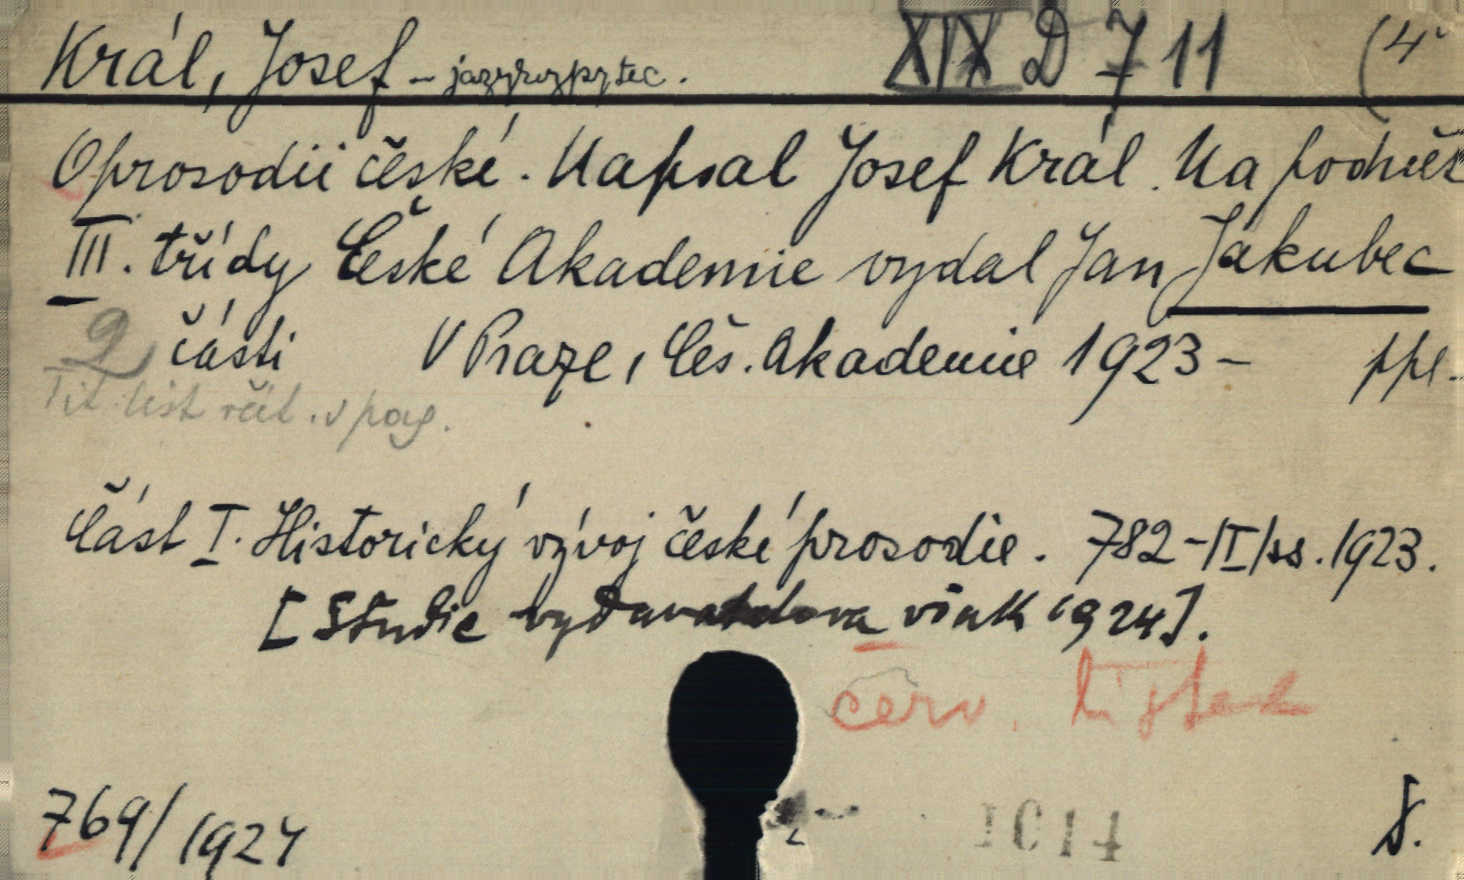 Král, Josef - jazykozpytec. XIX D 711 (4°
O prosodii české. Napsal Josef Král. Na podnět
III. třídy České Akademie vydal Jan Jakubec
2 části V Praze, Čes. Akademie 1923 - ppl.
Tit. list číst. v pag.
Část I. Historický vývoj české prosodie. 782-/I/ss. 1923.
[Studie však 1924].
červ. lístek
1014
769/1924